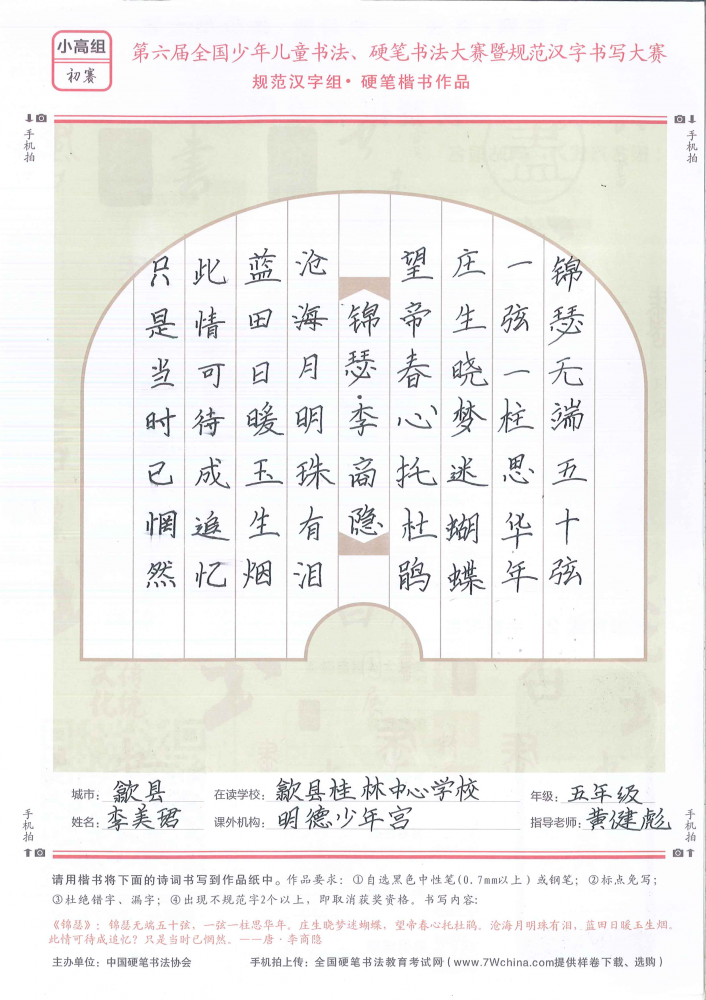 小高组
初赛
第六届全国少年儿童书法、硬笔书法大赛暨规范汉字书写大赛
规范汉字组·硬笔楷书作品
手机拍
手机拍
锦瑟无端五十弦
一弦一柱思华年
庄生晓梦迷蝴蝶
望帝春心托杜鹃
锦瑟·李商隐
沧海月明珠有泪
蓝田日暖玉生烟
此情可待成追忆
只是当时已惘然
城市：歙县 在读学校：歙县桂林中心学校 年级：五年级
姓名：李美珺 课外机构：明德少年宫 指导老师：黄健彪
手机拍
手机拍
请用楷书将下面的诗词书写到作品纸中。作品要求：①自选黑色中性笔(0.7mm以上)或钢笔；②标点免写；
③杜绝错字、漏字；④出现不规范字2个以上，即取消获奖资格。书写内容：
《锦瑟》：锦瑟无端五十弦，一弦一柱思华年。庄生晓梦迷蝴蝶，望帝春心托杜鹃。沧海月明珠有泪，蓝田日暖玉生烟。
此情可待成追忆？只是当时已惘然。——唐·李商隐
主办单位：中国硬笔书法协会 手机拍上传：全国硬笔书法教育考试网(www.7Wchina.com提供样卷下载、选购)